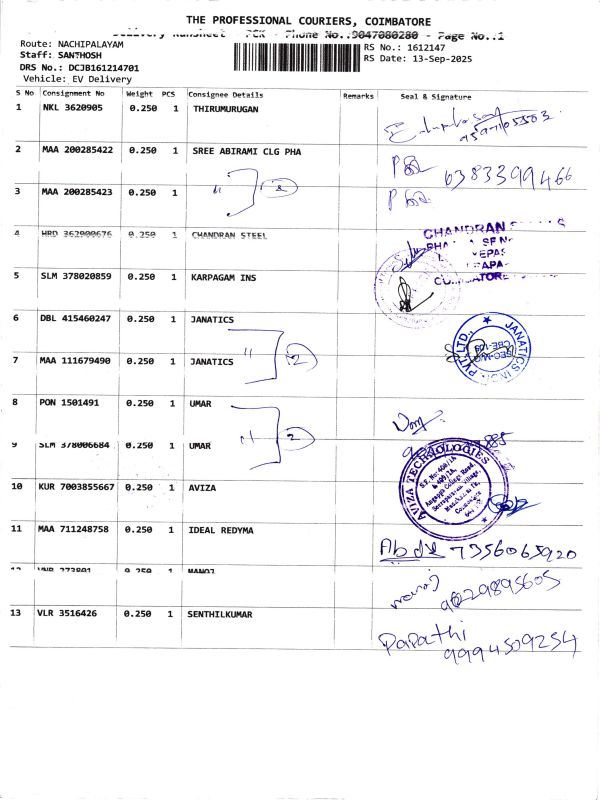 THE PROFESSIONAL COURIERS, COIMBATORE
Delivery Runsheet - PCK - Phone No.:9047080280 - Page No.:1
Route: NACHIPALAYAM
Staff: SANTHOSH
DRS No.: DCJB161214701
Vehicle: EV Delivery
RS No.: 1612147
RS Date: 13-Sep-2025
S No Consignment No Weight PCS Consignee Details Remarks Seal & Signature
1 NKL 3620905 0.250 1 THIRUMURUGAN
2 MAA 200285422 0.250 1 SREE ABIRAMI CLG PHA
6383399466
3 MAA 200285423 0.250 1 " 2
4 HRD 362000676 0.250 1 CHANDRAN STEEL
CHANDRAN
5 SLM 378020859 0.250 1 KARPAGAM INS
6 DBL 415460247 0.250 1 JANATICS
7 MAA 111679490 0.250 1 JANATICS " 2
JANATICS INDIA PVT. LTD.,
8 PON 1501491 0.250 1 UMAR
9 SLM 378006684 0.250 1 UMAR " 2
10 KUR 7003855667 0.250 1 AVIZA
AVIZA TECHNOLOGIES
S.F. No. 460/1A
& 460/2A,
11 MAA 711248758 0.250 1 IDEAL REDYMA
Abdul 7356065920
12 VNB 273801 0.250 1 MANOJ
manoj
90229895605
13 VLR 3516426 0.250 1 SENTHILKUMAR
Papathi
9994509254